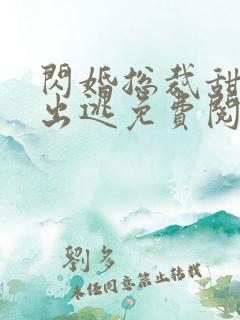 閃婚总裁甜
出逃免費閱
劉多
未经同意禁止转载